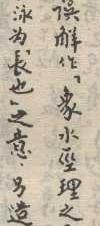 誤解作「象水巠理之
泳为「長也」之意，另造